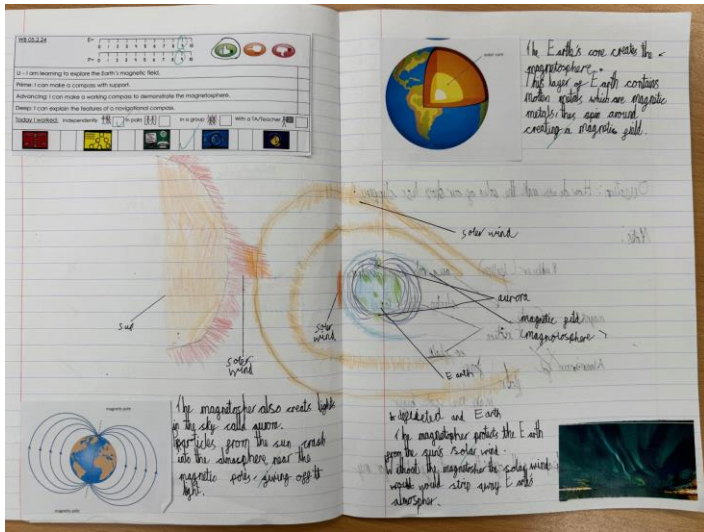 WB 05.2.24
E=
0 1 2 3 4 5 6 7 8 9 10
P=
0 1 2 3 4 5 6 7 8 9 10
LI – I am learning to explore the Earth's magnetic field.
Prime: I can make a compass with support.
Advancing: I can make a working compass to demonstrate the magnetosphere.
Deep: I can explain the features of a navigational compass.
Today I worked: Independently In pairs In a group With a TA/Teacher
The Earth's core creates the
magnetosphere.
This layer of Earth contains
molten metals which are magnetic
metals, they spin around
creating a magnetic field.
soler wind
sun
soler
wind
soler
wind
aurora
magnetic field
(magnotosphere)
Earth
magnetic pole
magnetic pole
The magnetospher also creats lights
in the sky called aurora.
particles from the sun crash
into the atmosphere near the
magnetic poles, giving off
light.
and Earth
The magnetospher protects the Earth
from the sun's solar wind
Without the magnetospher the solar wind
would strip away Earth's
atmospher.